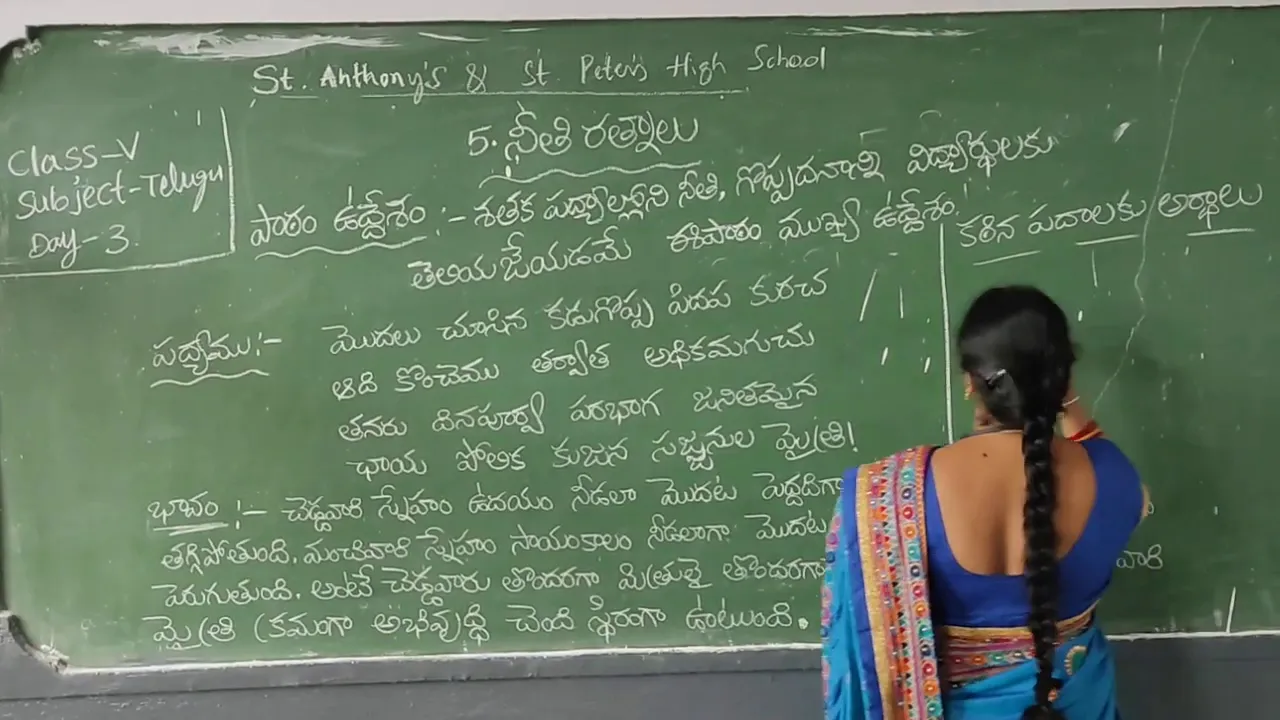 St. Anthony's & St Peter's High School
Class-V
Subject-Telugu
Day-3
5. నీతి రత్నాలు
పాఠం ఉద్దేశం :- శతక పద్యాల్లోని నీతి, గొప్పదనాన్ని విద్యార్థులకు
తెలియజేయడమే ఈపాఠం ముఖ్య ఉద్దేశం.
పద్యము:- మొదలు చూసిన కడుగొప్ప పిదప కురచ
ఆది కొంచెము తర్వాత అధికమగుచు
తనరు దినపూర్వ పరభాగ జనితమైన
ఛాయ పోలిక కుజన సజ్జనుల మైత్రి!
భావం :- చెడ్డవారి స్నేహం ఉదయం నీడలా మొదట పెద్దదిగా
తగ్గిపోతుంది. మంచివారి స్నేహం సాయంకాలం నీడలాగా మొదట
పెరుగుతుంది. అంటే చెడ్డవారు తొందరగా మిత్రులై తొందరగా వారి
మైత్రి క్రమంగా అభివృద్ధి చెంది స్థిరంగా ఉంటుంది.
కఠిన పదాలకు అర్థాలు